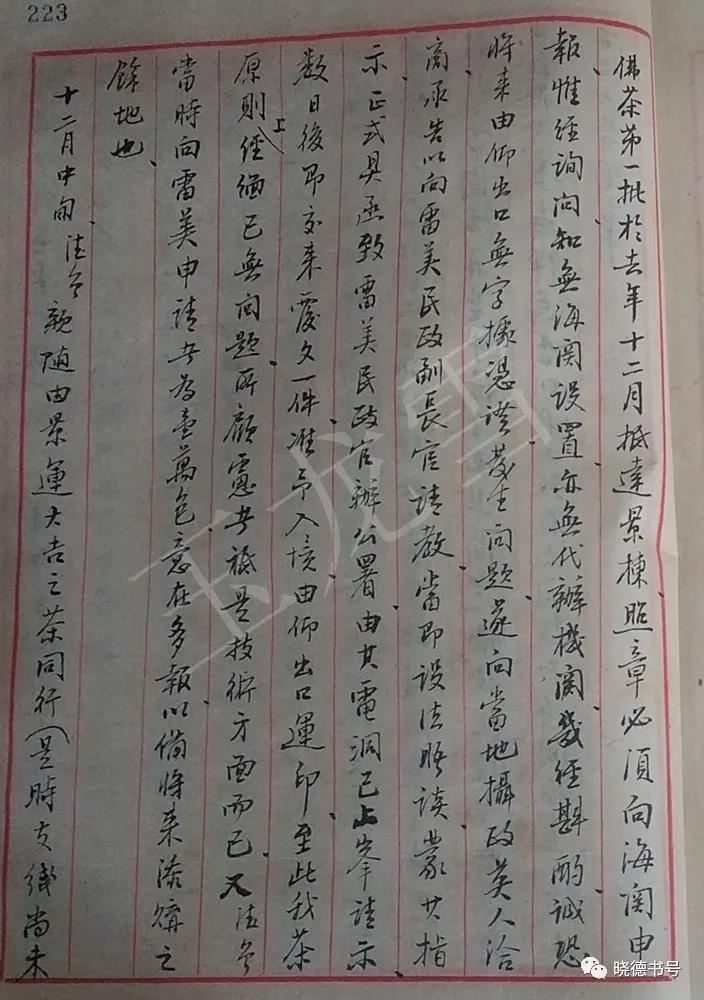 223
佛茶第一批於去年十二月抵達景棟、照章必須向海関申
報、惟經詢问知無海関設置、亦無代辦機関、幾經斟酌、誠恐
将来由仰出口無字據憑證發生问題、遂向當地攝政英人洽
商承告以向雷美民政副長官請教、當即設法晤谈、蒙其指
示、正式具函致雷美民政官辦公署、由其電洞已上峯請示、
数日後即交来覆文一件、准予入境由仰出口運印、至此我茶
原則上經緬已無问題、所顧慮者祗是技術方面而已、又法
當時向雷美申請者為壹萬包、意在多報以備将来添購之
餘地也、
十二月中旬、法 親随由景運大吉之茶同行(是時支綫尚未
玉龙雪
晓德书号